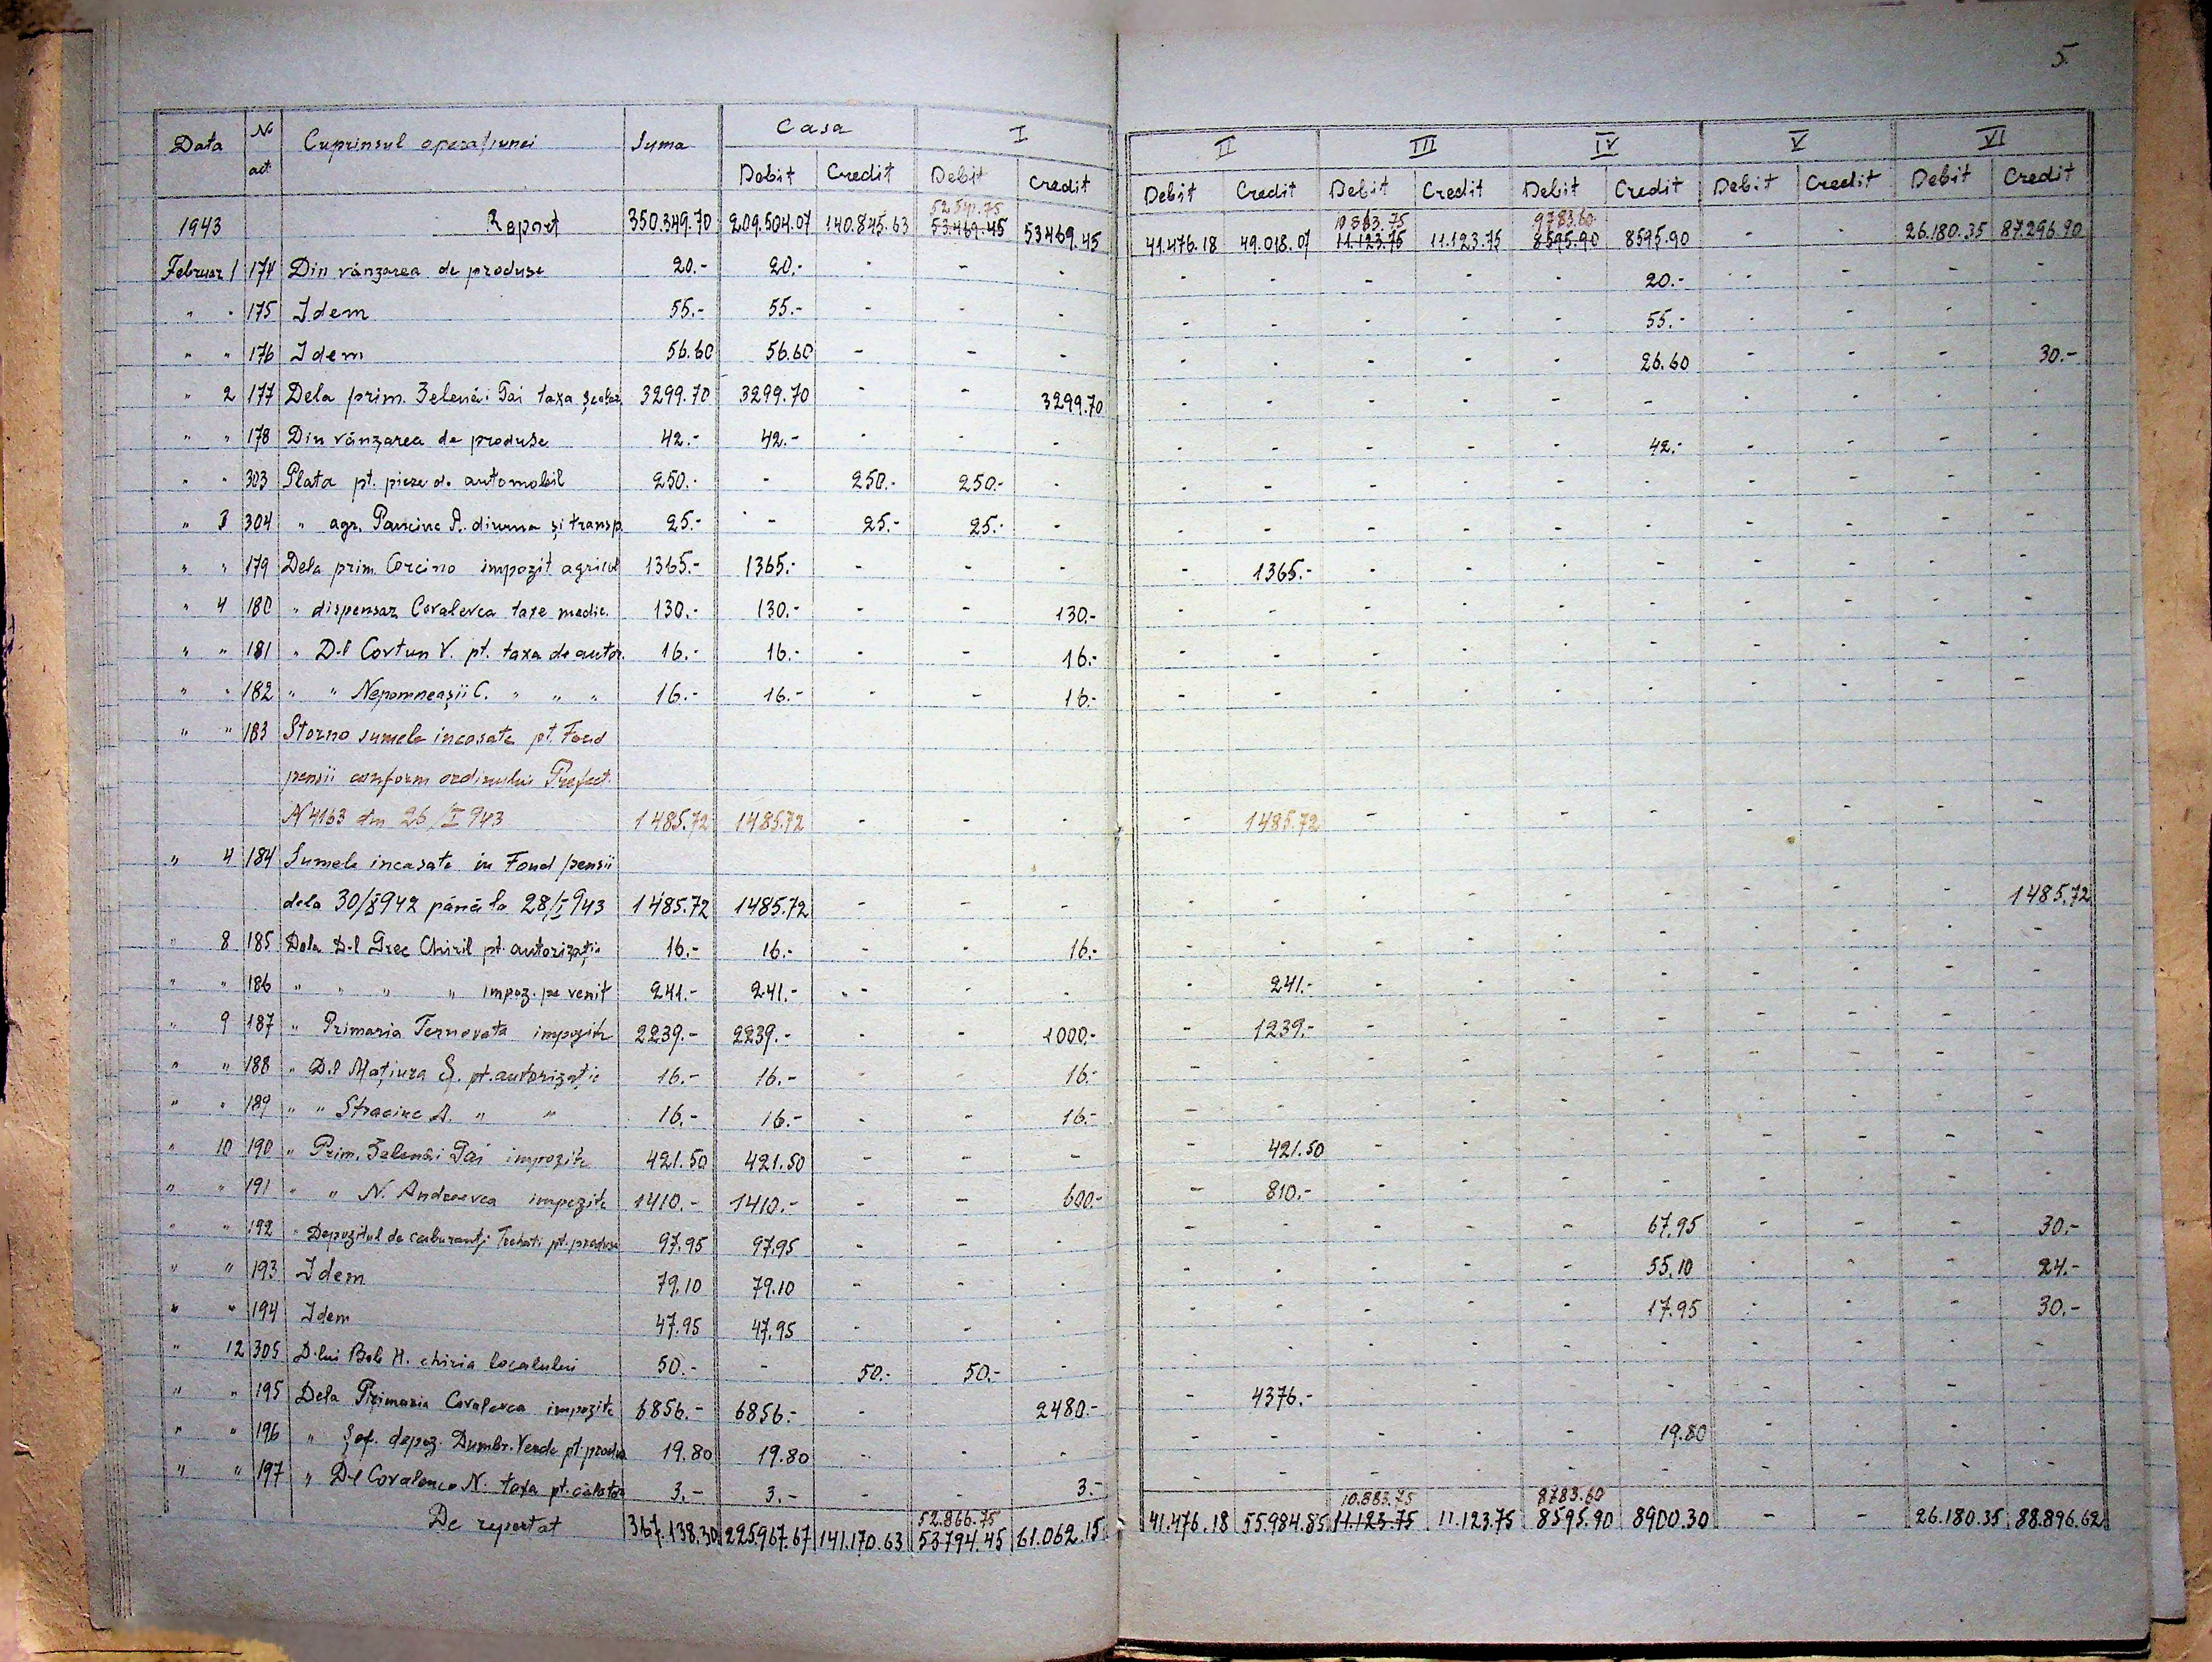 5
Data | No act | Cuprinsul operațiunei | Suma | Casa | I | II | III | IV | V | VI
Debit | Credit | Debit | Credit | Debit | Credit | Debit | Credit | Debit | Credit | Debit | Credit | Debit | Credit
10883.75 | 9783.60
1943 | Report | 350.349.70 | 209.504.07 | 140.845.63 | 53.469.45 | 53469.45 | 41.476.18 | 49.018.07 | 11.123.75 | 11.123.75 | 8595.90 | 8595.90 | - | - | 26.180.35 | 87.296.90
Februar 1 | 174 | Din vânzarea de produse | 20.- | 20.- | - | - | - | - | - | - | - | - | 20.- | - | - | - | -
" " | 175 | Idem | 55.- | 55.- | - | - | - | - | - | - | - | - | 55.- | - | - | - | -
" " | 176 | Idem | 56.60 | 56.60 | - | - | - | - | - | - | - | - | 26.60 | - | - | - | 30.-
" 2 | 177 | Dela prim. Zelenâi Gai taxa școlar | 3299.70 | 3299.70 | - | - | 3299.70 | - | - | - | - | - | - | - | - | - | -
" " | 178 | Din vânzarea de produse | 42.- | 42.- | - | - | - | - | - | - | - | - | 42.- | - | - | - | -
" " | 303 | Plata pt. piese de automobil | 250.- | - | 250.- | 250.- | - | - | - | - | - | - | - | - | - | - | -
" 3 | 304 | " agr. A. diurna și transp. | 25.- | - | 25.- | 25.- | - | - | - | - | - | - | - | - | - | - | -
" " | 179 | Dela prim. Corcino impozit agricol | 1365.- | 1365.- | - | - | - | - | 1365.- | - | - | - | - | - | - | - | -
" 4 | 180 | " dispensar Covalevca taxe medic. | 130.- | 130.- | - | - | 130.- | - | - | - | - | - | - | - | - | - | -
" " | 181 | " D-l Covtun V. pt. taxa de autor. | 16.- | 16.- | - | - | 16.- | - | - | - | - | - | - | - | - | - | -
" " | 182 | " " Nepomneașii C. " " " | 16.- | 16.- | - | - | 16.- | - | - | - | - | - | - | - | - | - | -
" " | 183 | Storno sumele incasate pt. Fond
pensii conform ordinului Prefect.
N 4163 din 26/I 943 | 1485.72 | 1485.72 | - | - | - | 1485.72 | - | - | - | - | - | - | - | -
" 4 | 184 | Sumele incasate in Fond pensii
dela 30/X942 până la 28/I 943 | 1485.72 | 1485.72 | - | - | - | - | - | - | - | - | - | - | - | - | 1485.72
" 8 | 185 | Dela D-l Grec Chiril pt. autorizație | 16.- | 16.- | - | - | 16.- | - | - | - | - | - | - | - | - | - | -
" " | 186 | " " " " impoz. pe venit | 241.- | 241.- | - | - | - | - | 241.- | - | - | - | - | - | - | - | -
" 9 | 187 | " Primaria Ternovata impozite | 2239.- | 2239.- | - | - | 1000.- | - | 1239.- | - | - | - | - | - | - | - | -
" " | 188 | " D-l Mațiura S. pt. autorizație | 16.- | 16.- | - | - | 16.- | - | - | - | - | - | - | - | - | - | -
" " | 189 | " " A. " " | 16.- | 16.- | - | - | 16.- | - | - | - | - | - | - | - | - | - | -
" 10 | 190 | " Prim. Zelenâi Gai impozite | 421.50 | 421.50 | - | - | - | - | 421.50 | - | - | - | - | - | - | - | -
" " | 191 | " " N. Andreevca impozite | 1410.- | 1410.- | - | - | 600.- | - | 810.- | - | - | - | - | - | - | - | -
" " | 192 | " Depozitul de carburanți pt. produse | 97.95 | 97.95 | - | - | - | - | - | - | - | - | 67.95 | - | - | - | 30.-
" " | 193 | Idem | 79.10 | 79.10 | - | - | - | - | - | - | - | - | 55.10 | - | - | - | 24.-
" " | 194 | Idem | 47.95 | 47.95 | - | - | - | - | - | - | - | - | 17.95 | - | - | - | 30.-
" 12 | 305 | D-lui Bob H. chiria localului | 50.- | - | 50.- | 50.- | - | - | - | - | - | - | - | - | - | - | -
" " | 195 | Dela Primaria Covalevca impozite | 6856.- | 6856.- | - | - | 2480.- | - | 4376.- | - | - | - | - | - | - | - | -
" " | 196 | " Șef. depoz. Dumbr. Verde pt. produse | 19.80 | 19.80 | - | - | - | - | - | - | - | - | 19.80 | - | - | - | -
" " | 197 | " D-l Covalenco N. taxa pt. | 3.- | 3.- | - | - | 3.- | - | - | - | - | - | - | - | - | - | -
52.866.75 | 10.883.75 | 8783.60
De reportat | 367.138.30 | 225.967.67 | 141.170.63 | 53794.45 | 61.062.15 | 41.476.18 | 55.984.85 | 11.123.75 | 11.123.75 | 8595.90 | 8900.30 | - | - | 26.180.35 | 88.896.62